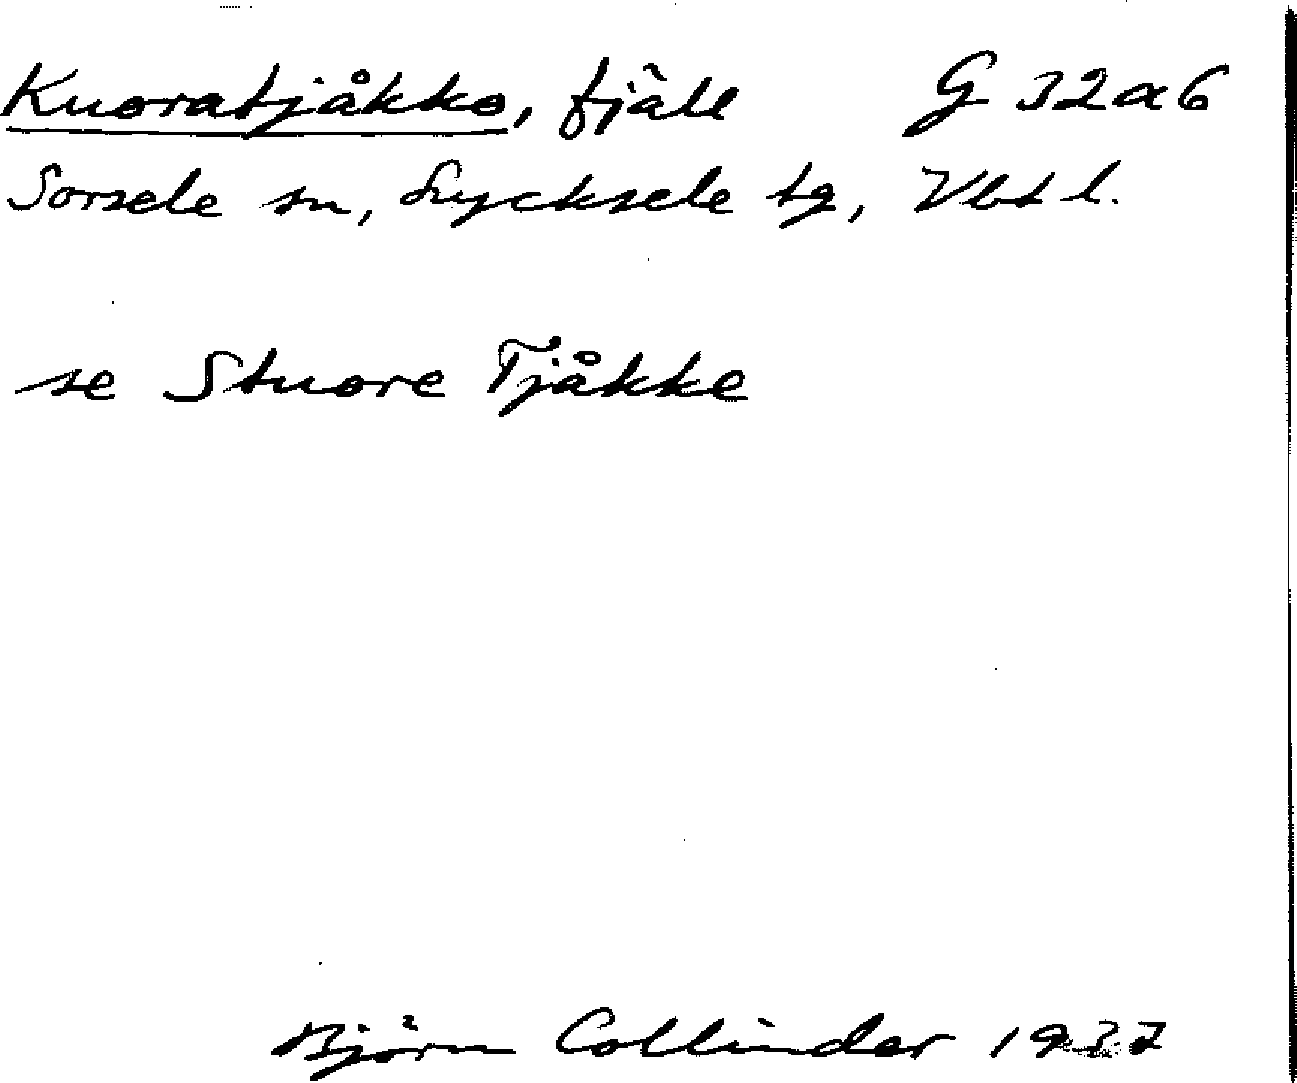 Kuoratjåkko, fjäll G 32a6
Sorsele sn, Lycksele tg, Vbt l.
se Stuore Tjåkke
Björn Collinder 1937